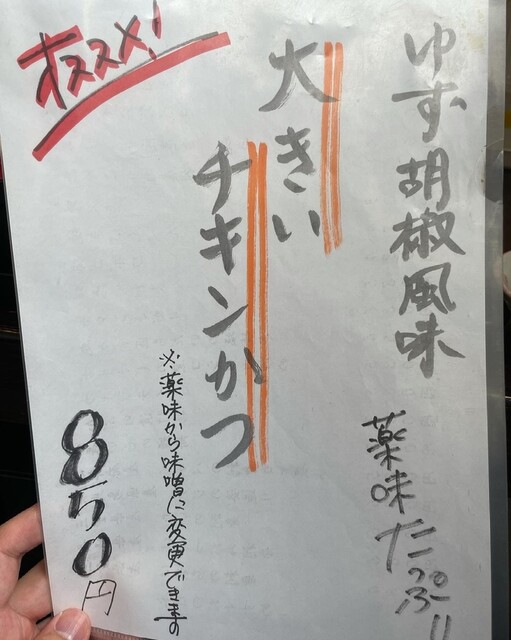 オススメ!
ゆず胡椒風味
薬味たっぷり
大きい
チキンかつ
※薬味から味噌に変更できます。
850円